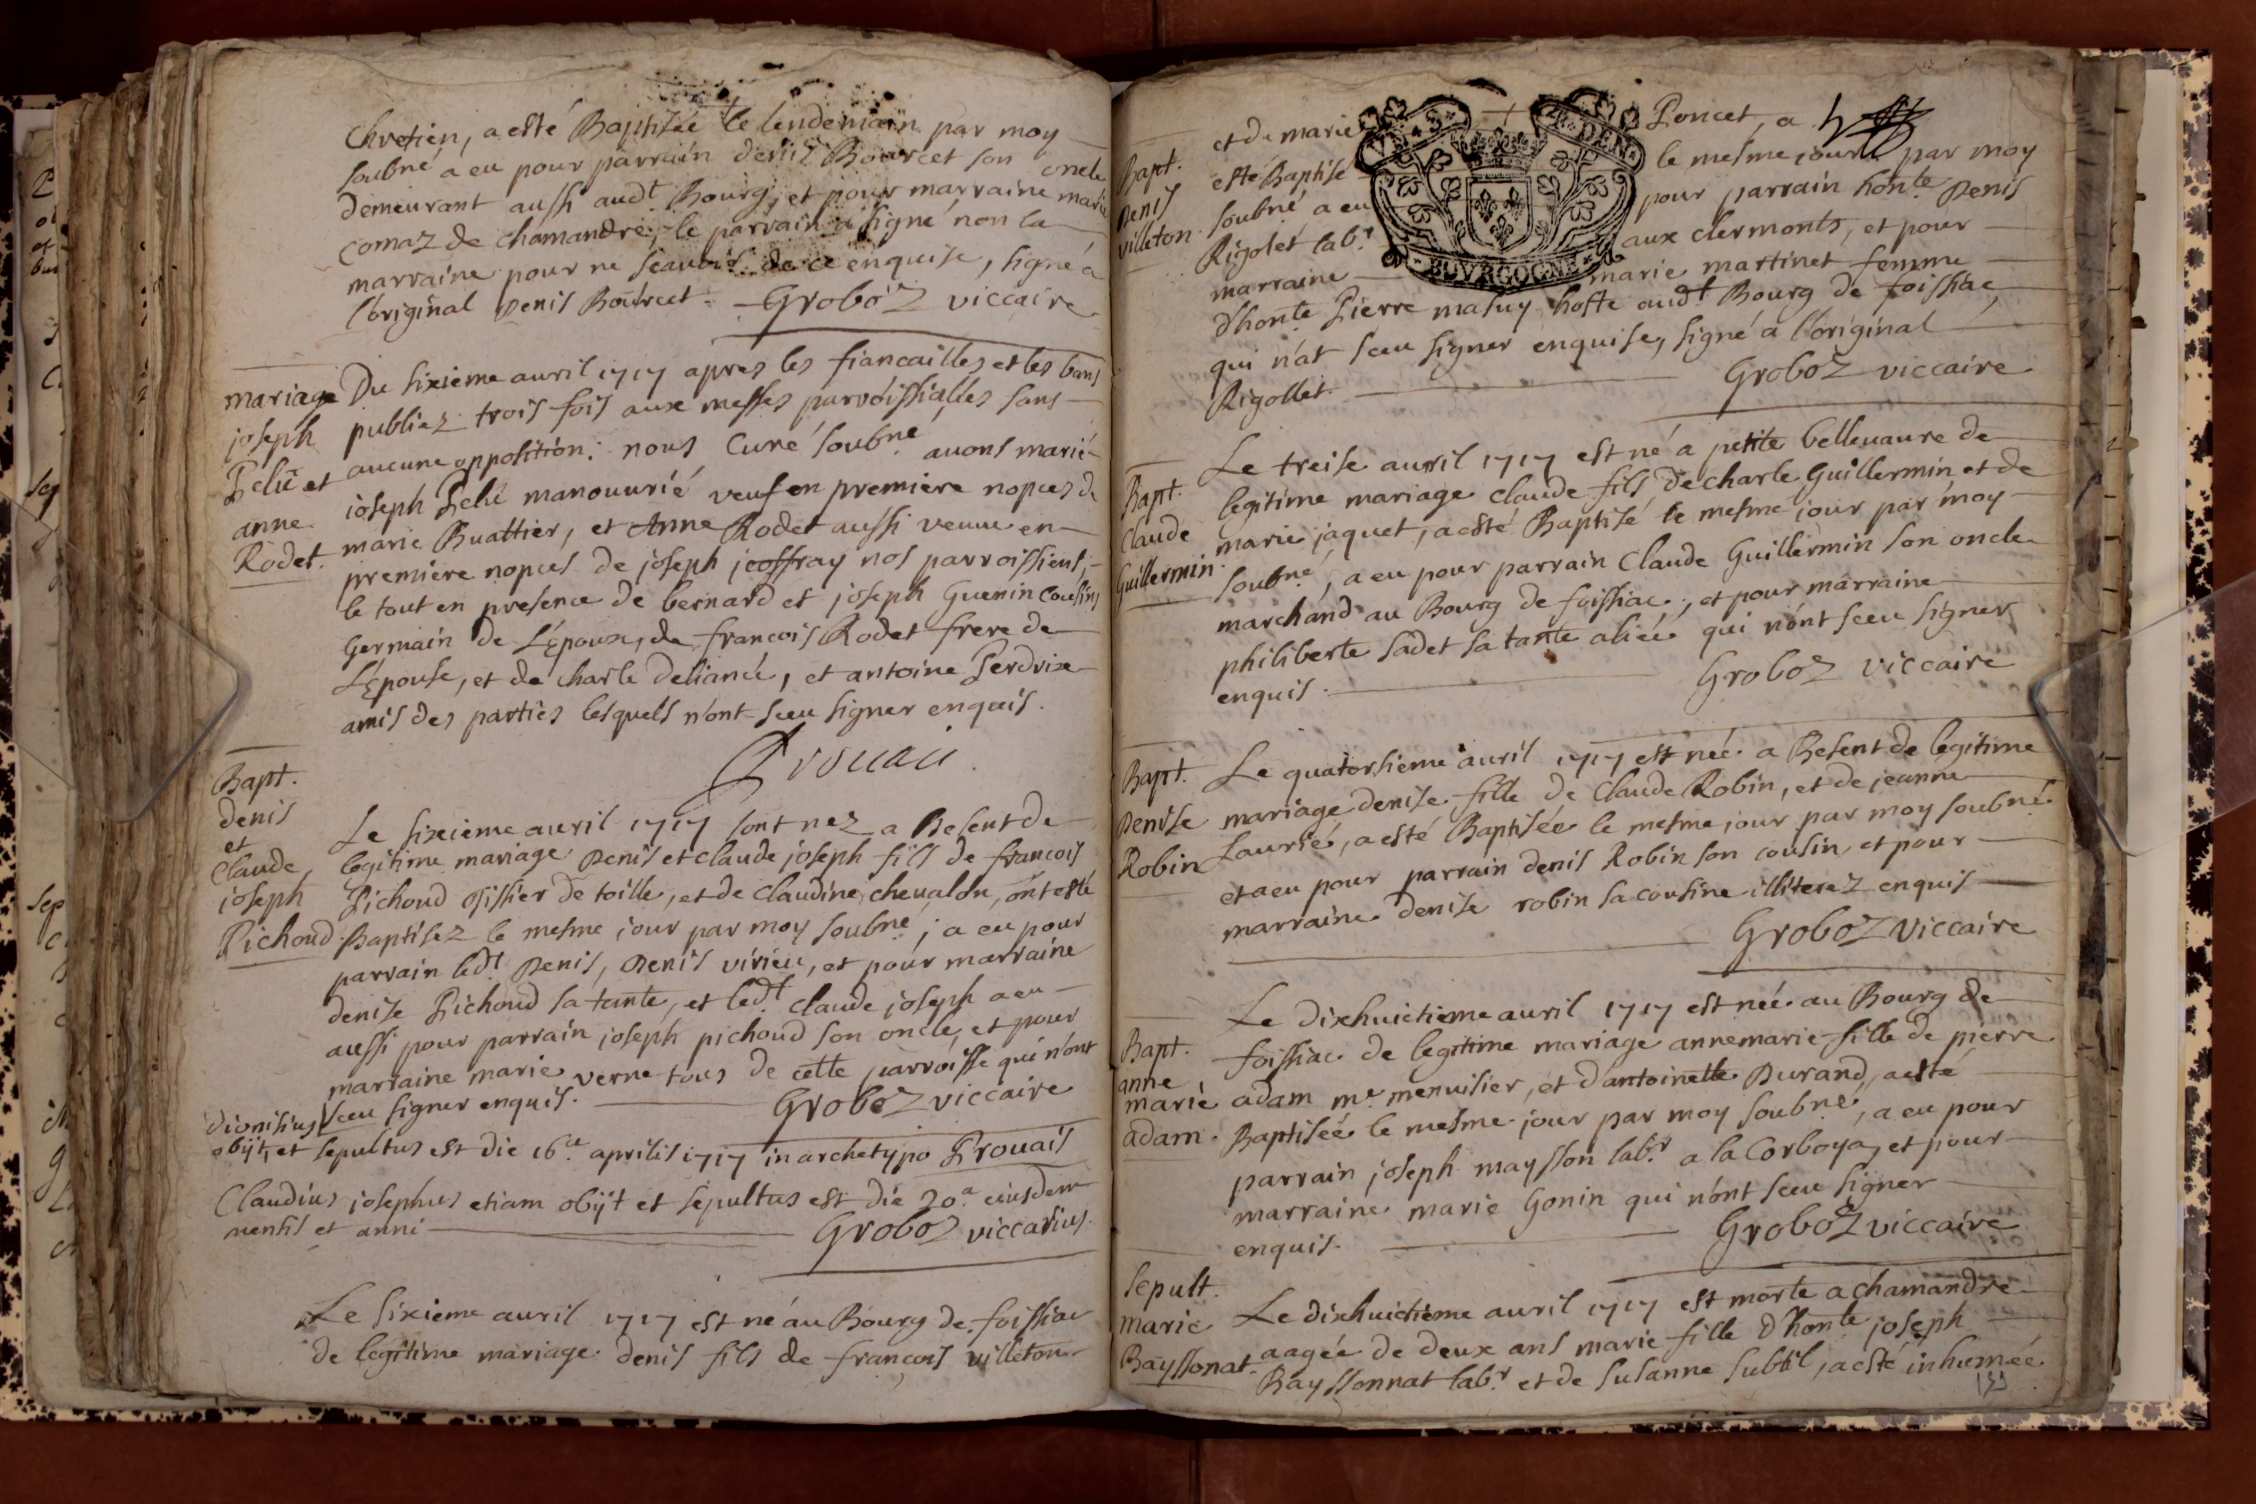 Chretien, a esté Baptisée le lendemain par moy
soubné a eu pour parrain denis Bourcet son oncle
demeurant aussi audt Bourg, et pour marraine marie
Comaz de chamandre, le parrain a signé non la
marraine pour ne scauoir de ce enquise, signé a
l'original Denis Bourcet. Groboz viccaire
mariage
joseph
Pelü et
anne
Rodet.
Du sixieme auril 1717 apres les fiancailles et les bans
publiez trois fois aux messes parroissialles sans
aucune opposition: nous Curé soubné auons marié
joseph Pelü manouurié veuf en premiere nopces de
marie Buattier, et Anne Rodet aussi veuue en
premiere nopces de joseph jcoffray nos parroissiens,
le tout en presence de bernard et joseph Guenin Cousins
Germain de L'Epoux, de francois Rodet frere de
L'Epouse, et de charle deliance, et antoine Perdrix
amis des parties lesquels n'ont sceu signer enquis.
Prouais
Bapt.
denis
et
Claude
joseph
Pichoud
Le sixieme auril 1717 sont nez a Besent de
legitime mariage Denis et claude joseph fils de francois
Pichoud tissier de toille, et de Claudine cheualon, ont esté
Baptisez le mesme jour par moy soubné, a eu pour
parrain ledt Denis, Denis virieu, et pour marraine
denise Pichoud sa tante, et ledt claude joseph a eu
aussi pour parrain joseph pichoud son oncle, et pour
marraine marie verne tous de cette parroisse qui n'ont
sceu signer enquis. Groboz viccaire
dionisius
obijt, et sepultus est die 16a aprilis 1717 in archetypo Prouais
Claudius josephus etiam obijt et sepultus est die 20a eiusdem
mensis et anni Groboz viccarius.
Le sixieme auril 1717 est né au Bourg de foissiac
de legitime mariage denis fils de francois villeton
Bapt.
Denis
villeton.
et de marie Poncet, a
esté Baptisé le mesme jour par moy
soubné a eu pour parrain honte Denis
Rigolet labr aux clermonts, et pour
marraine marie martinet femme
d'honte Pierre masuy hoste audt Bourg de foissiac
qui n'at sceu signer enquise, signé a l'original
Rigollet. Groboz viccaire
VN. 3. S DEN.
BOVRGOGNE
Bapt.
Claude
Guillermin.
Le treise auril 1717 est né a petite belleuaure de
legitime mariage claude fils de charle Guillermin et de
marie jaquet, a esté Baptisé le mesme jour par moy
soubné, a eu pour parrain Claude Guillermin son oncle
marchand au Bourg de foissiac, et pour marraine
philiberte sadet sa tante aliée qui n'ont sceu signer
enquis. Groboz viccaire
Bapt.
Denise
Robin
Le quatorsieme auril 1717 est née a Besent de legitime
mariage denise fille de Claude Robin, et de jeanne
Laurié, a esté Baptisée le mesme jour par moy soubné
et a eu pour parrain denis Robin son cousin et pour
marraine denise robin sa cousine illiterez enquis
Groboz viccaire
Bapt.
anne
marie
adam.
Le dixhuictieme auril 1717 est née au Bourg de
foissiac de legitime mariage annemarie fille de pierre
adam me menuisier, et d'antoinette Durand, a esté
Baptisée le mesme jour par moy soubné, a eu pour
parrain joseph maysson labr a la Corboya, et pour
marraine marie Gonin qui n'ont sceu signer
enquis. Groboz viccaire
sepult.
marie
Bayssonat.
Le dixhuictieme auril 1717 est morte a chamandre
aagée de deux ans marie fille d'honte joseph
Bayssonnat labr et de susanne subtil, a esté inhumée